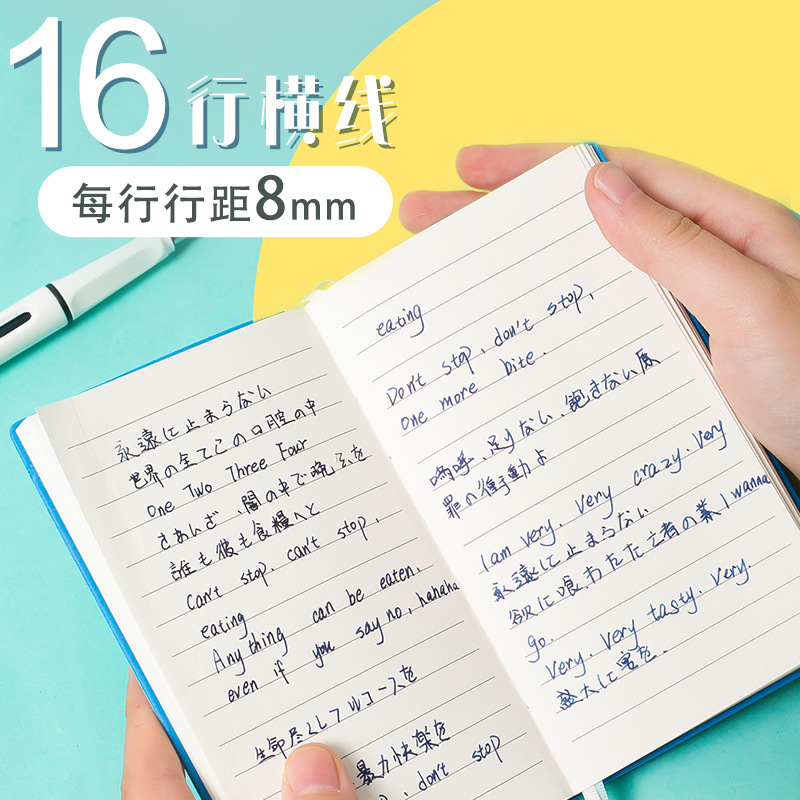 16行横线
每行行距8mm
永遠に止まらない
世界の全てこの口腔の中
One Two Three Four
さあいざ、闇の中で晩さんを
誰も彼も食糧へと
Can't stop, can't stop,
eating
Anything can be eaten.
even if you say no, hahaha
生命尽くしてソースを
暴力快楽を
don't stop
eating
Don't stop, don't stop,
One more bite.
嗚呼、足りない、飽きない
罪の衝動よ
I am very, very crazy. Very
永遠に止まらない
欲に喰われた亡者の
I wanna
go.
Very, very tasty. Very.
盛大に宴を.